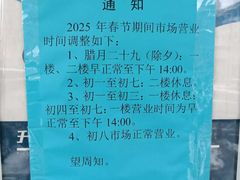 通 知
2025 年春节期间市场营业
时间调整如下：
1、腊月二十九（除夕）：一
楼、二楼早正常至下午 14:00。
2、初一至初七：二楼休息
3、初一至初三：一楼休息；
初四至初七：一楼营业时间为早
正常至下午 14:00。
4、初八市场正常营业。
望周知。